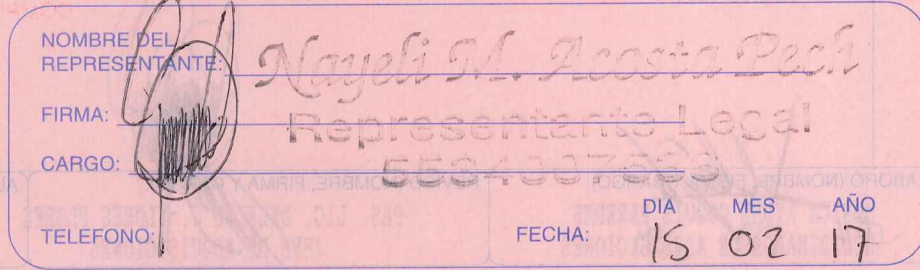 NOMBRE DEL
REPRESENTANTE: Nayeli M. Acosta Pech
FIRMA: Representante Legal
CARGO:
DIA MES AÑO
TELEFONO: FECHA: 15 02 17